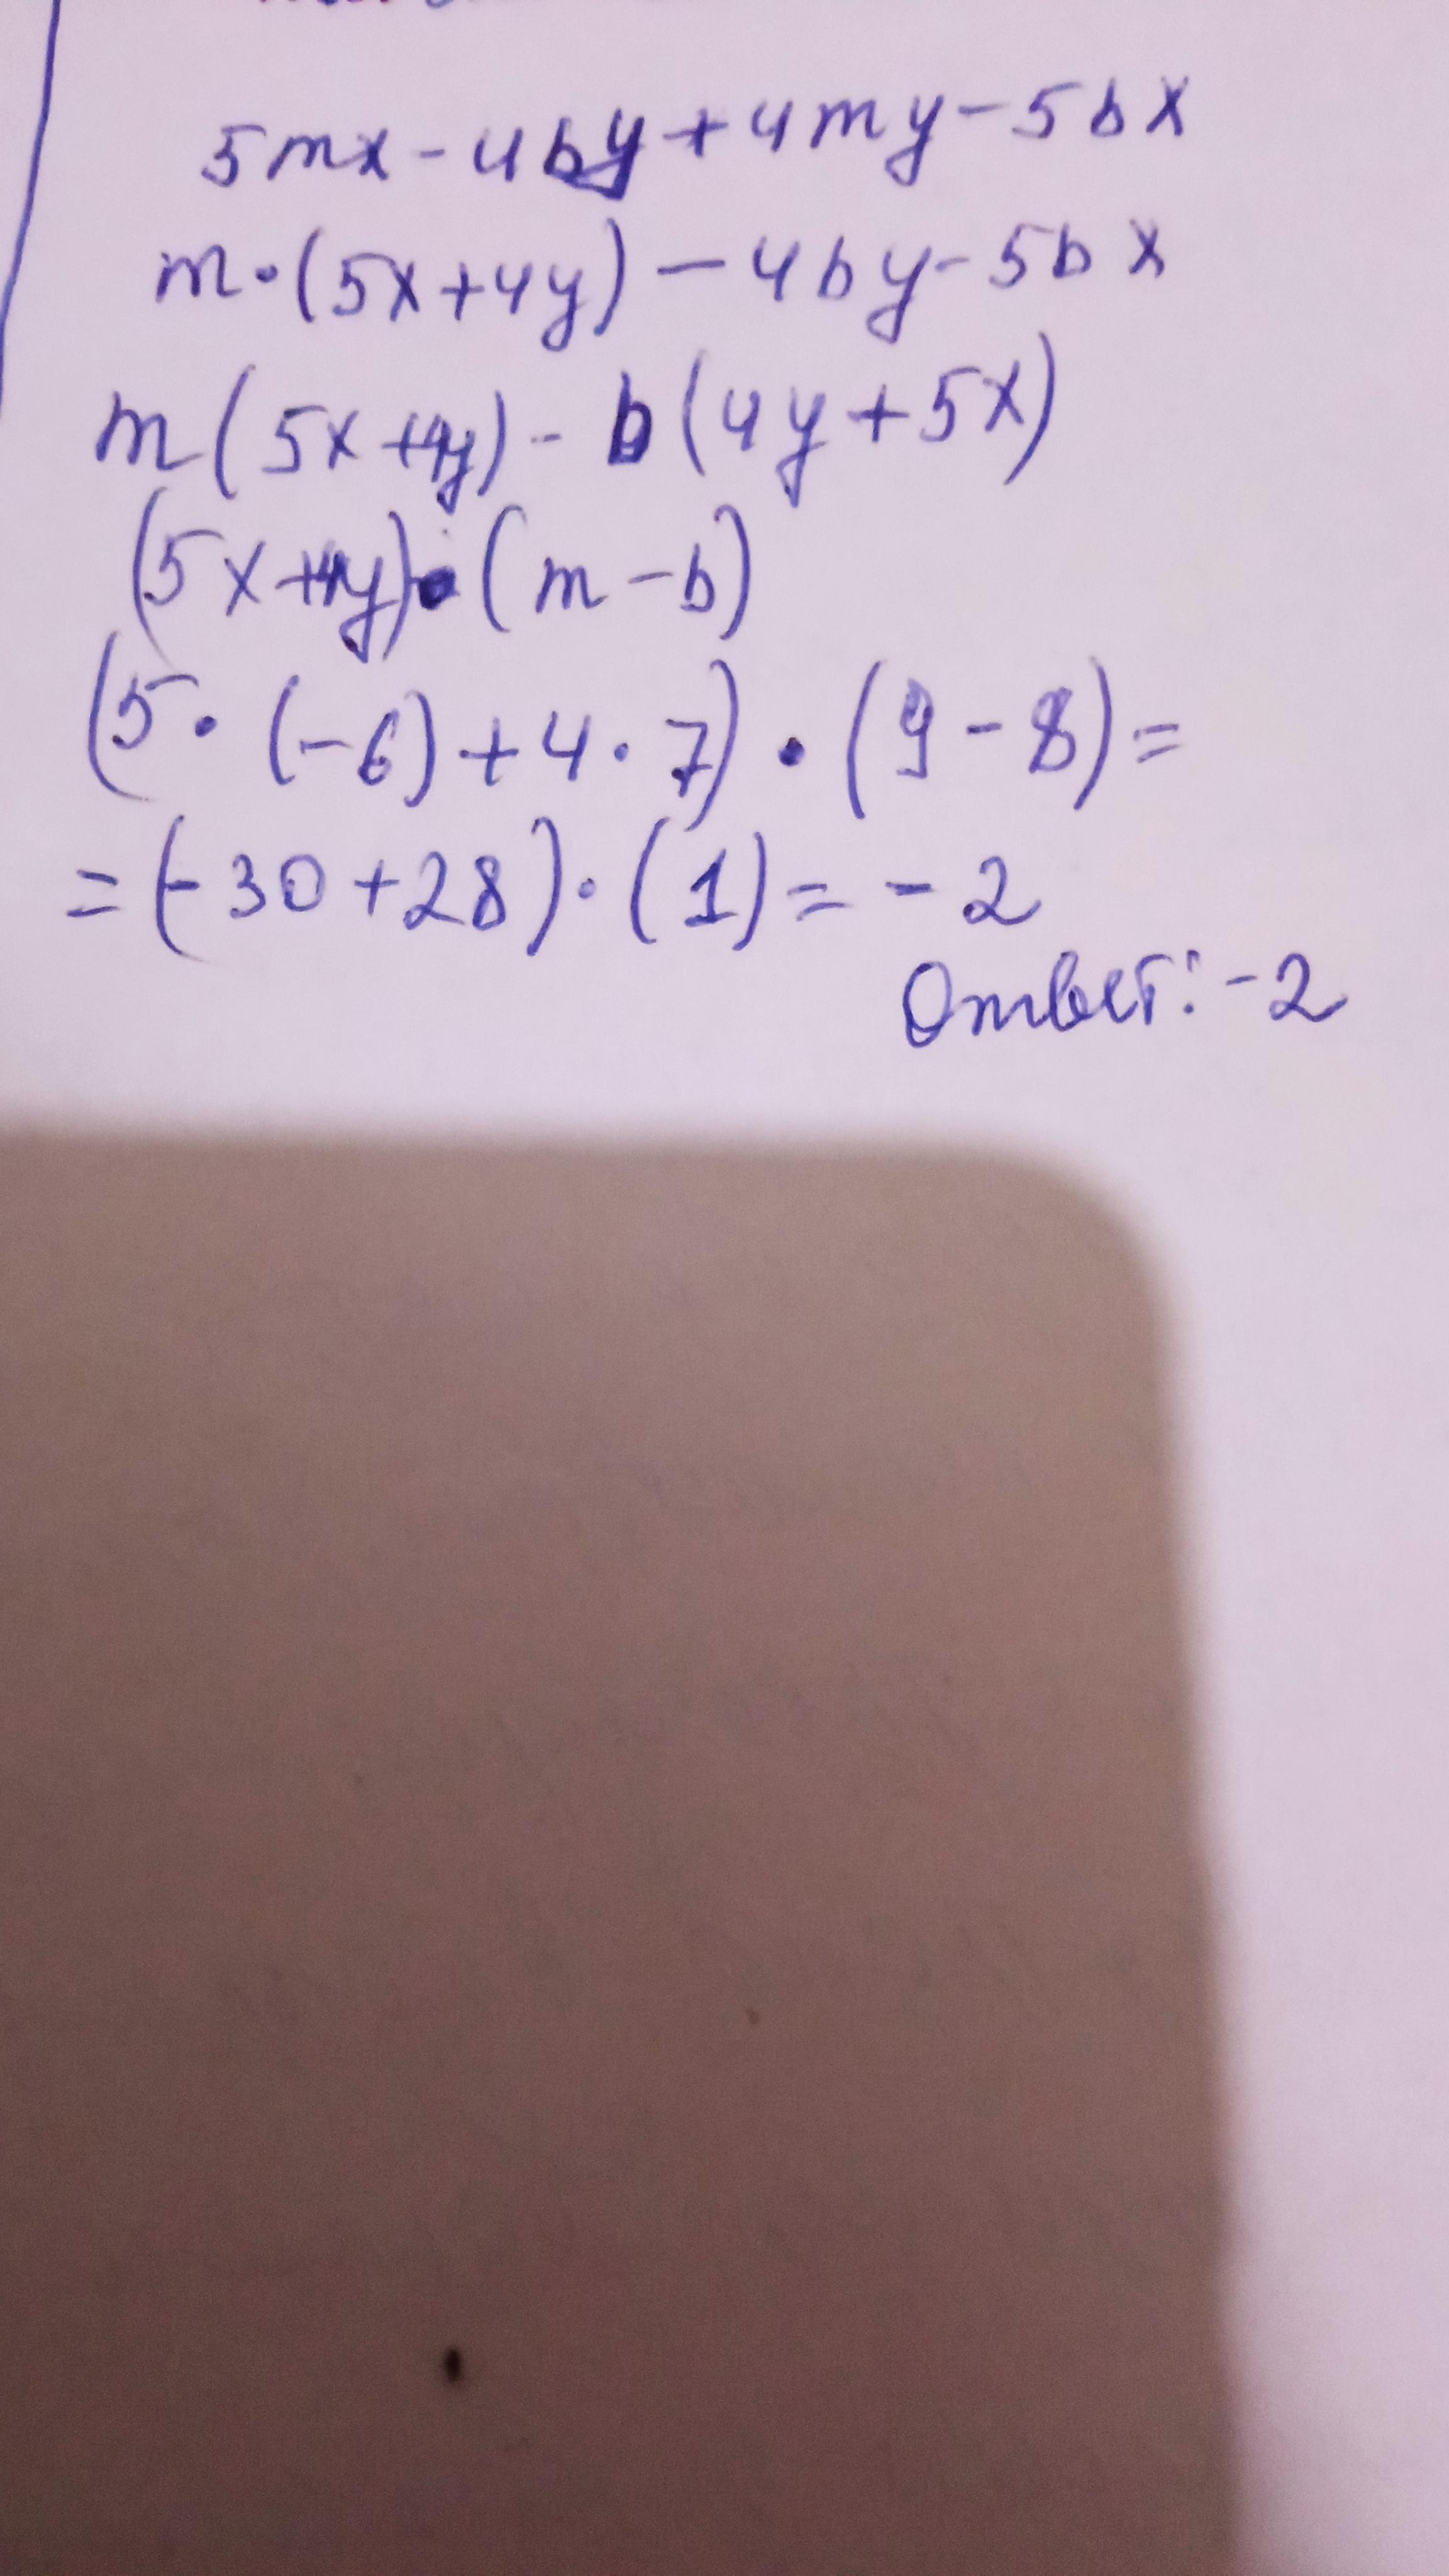 5mx - 4by + 4my - 5bx
m·(5x+4y) - 4by - 5bx
m(5x+4y) - b(4y+5x)
(5x+4y)·(m-b)
(5·(-6)+4·7)·(9-8)=
=(-30+28)·(1)= -2
Ответ: -2